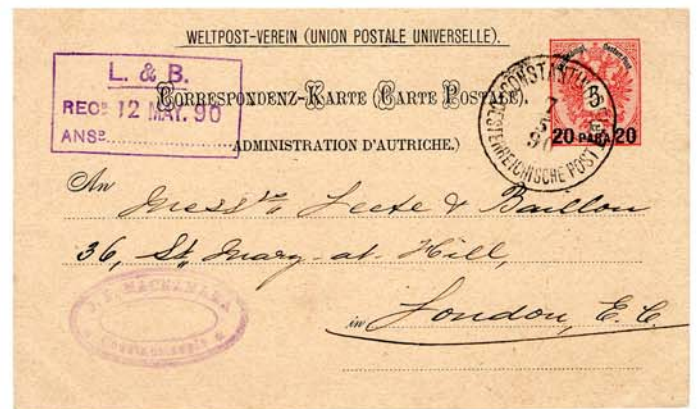 WELTPOST-VEREIN (UNION POSTALE UNIVERSELLE).
L. & B.
RECD 12 MAY. 90
ANSD
CORRESPONDENZ-KARTE (CARTE POSTALE).
ADMINISTRATION D'AUTRICHE.)
CONSTANTINOPEL
7
5
90
OESTERREICHISCHE POST
20 PARA 20
An
Messrs Leete & Baillon
36, St Mary-at-Hill,
in London, E.C.